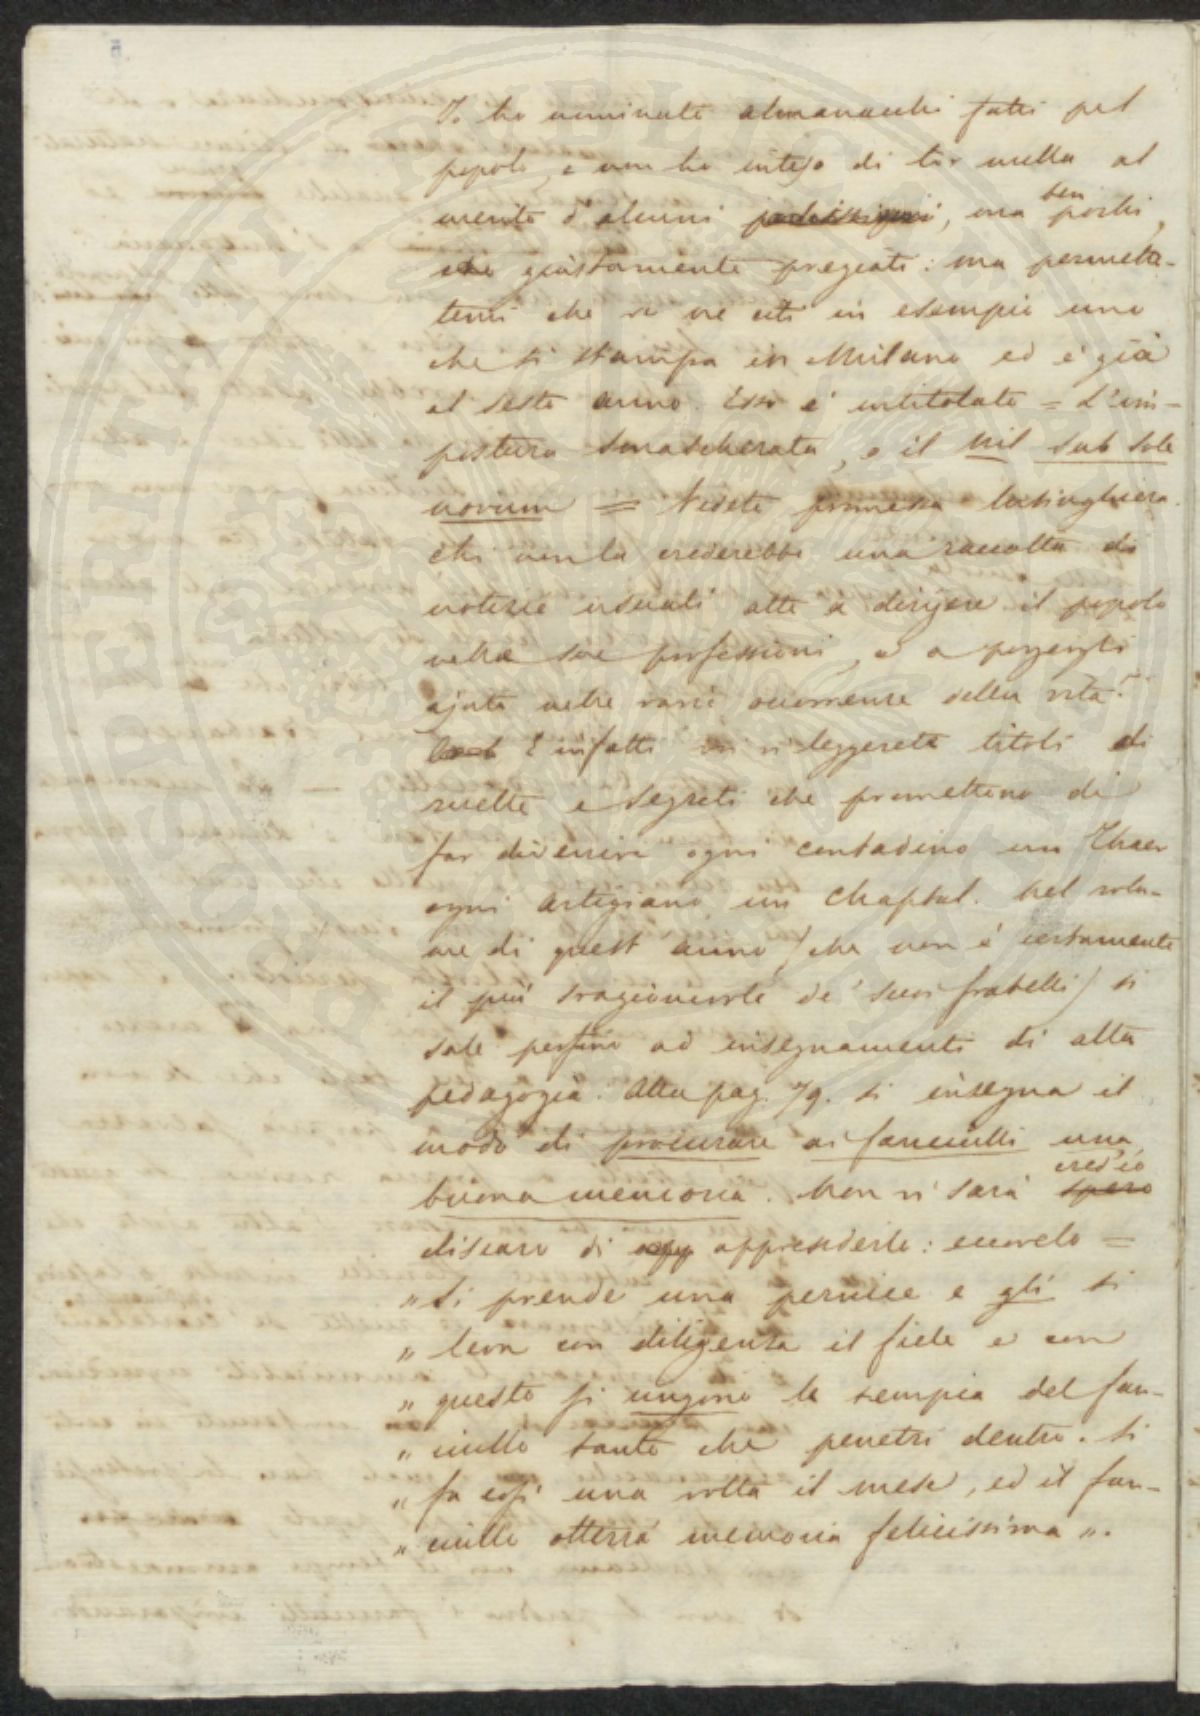 Io ho nominate almanacchi fatti pel
popolo, e non ho inteso di tor nulla al
merito d'alcuni pochissimi, ma ben pochi,
che giustamente pregiati: ma permette-
temi che ve ne citi in esempio uno
che si stampa in Milano ed è già
al sesto anno. Esso è intitolato = L'im-
postura smascherata, o il Nil sub sole
novum = Vedete promessa lusinghiera.
chi non la crederebbe una raccolta di
notizie usuali atte a dirigere il popolo
nelle sue professioni, e a porgergli
ajuto nelle varie occorrenze della vita?
E infatti voi vi leggerete titoli di
ricette e segreti che promettono di
far divenire ogni contadino un Thaer
ogni artigiano un Chaptal. Nel volu-
me di quest anno (che non è certamente
il più sragionevole de' suoi fratelli) si
sale perfino ad insegnamenti di alta
pedagogia. Alla pag. 79. si insegna il
modo di procurare ai fanciulli una
buona memoria. Non vi sarà spero cred'io
discaro di app apprenderlo: eccovelo =
„ Si prende una pernice e gli si
„ leva con diligenza il fiele e con
„ questo si ungono le tempia del fan-
„ ciullo tanto che penetri dentro. Si
„ fa così una volta il mese, ed il fan-
„ ciullo otterrà memoria felicissima „.